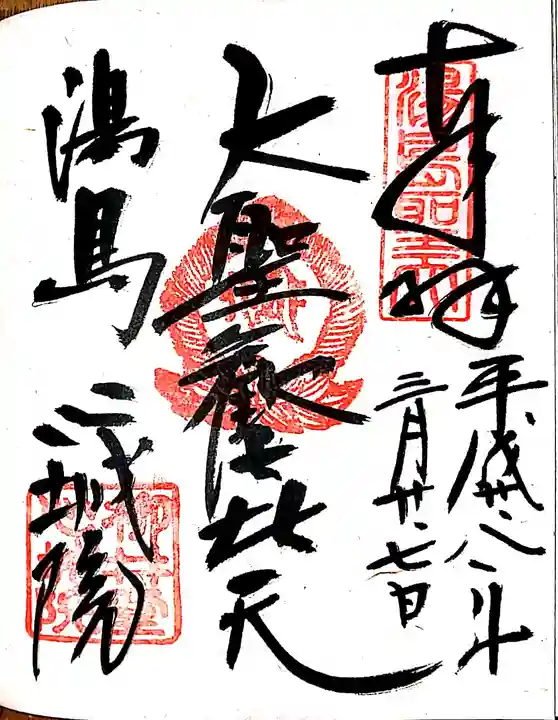 奉拝
湯島聖天
平成廿八年
三月廿七日
大聖歓喜天
湯島 心城院